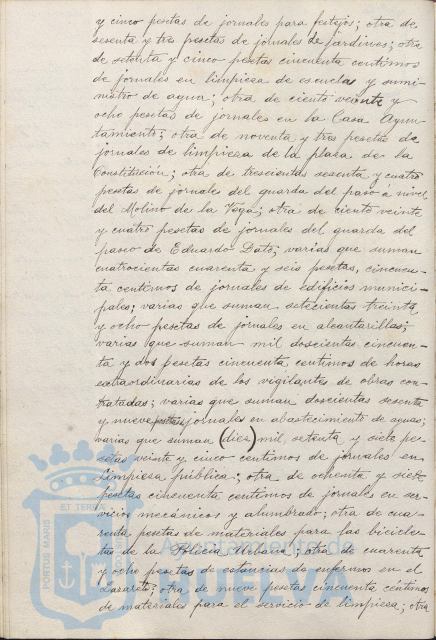 y cinco pesetas de jornales para festejos; otra de
sesenta y tres pesetas de jornales de jardines; otra
de setenta y cinco pesetas cincuenta centimos
de jornales en limpieza de escuelas y sumi-
nistro de agua; otra de ciento veinte y
ocho pesetas de jornales en la Casa Ayun-
tamiento; otra de noventa y tres pesetas de
jornales de limpieza de la plaza de la
Constitución; otra de trescientas sesenta y cuatro
pesetas de jornales del guarda del paso á nivel
del Molino de la Vega; otra de ciento veinte
y cuatro pesetas de jornales del guarda del
paseo de Eduardo Dato; varias que suman
cuatrocientas cuarenta y seis pesetas, cincuen-
ta centimos de jornales de edificios munici-
pales; varias que suman setecientas treinta
y ocho pesetas de jornales en alcantarillas;
varias que suman mil doscientas cincuen-
ta y dos pesetas cincuenta centimos de horas
extraordinarias de los vigilantes de obras con-
tratadas; varias que suman doscientas sesenta
y nueve pesetas jornales en abastecimiento de aguas;
varias que suman (diez) mil, setenta y siete pe-
setas veinte y cinco centimos de jornales en
limpieza pública; otra de ochenta y siete
pesetas cincuenta centimos de jornales en ser-
vicios mecánicos y alumbrado; otra de cua-
renta pesetas de materiales para las bicicle-
tas de la Policia Urbana; otra de cuarenta
y ocho pesetas de estancias de enfermos en el
Lazareto; otra de nueve pesetas cincuenta céntimos
de materiales para el servicio de limpieza; otra
PORTUS MARIS
ET TERRAE
Ayuntamiento de
HUELVA